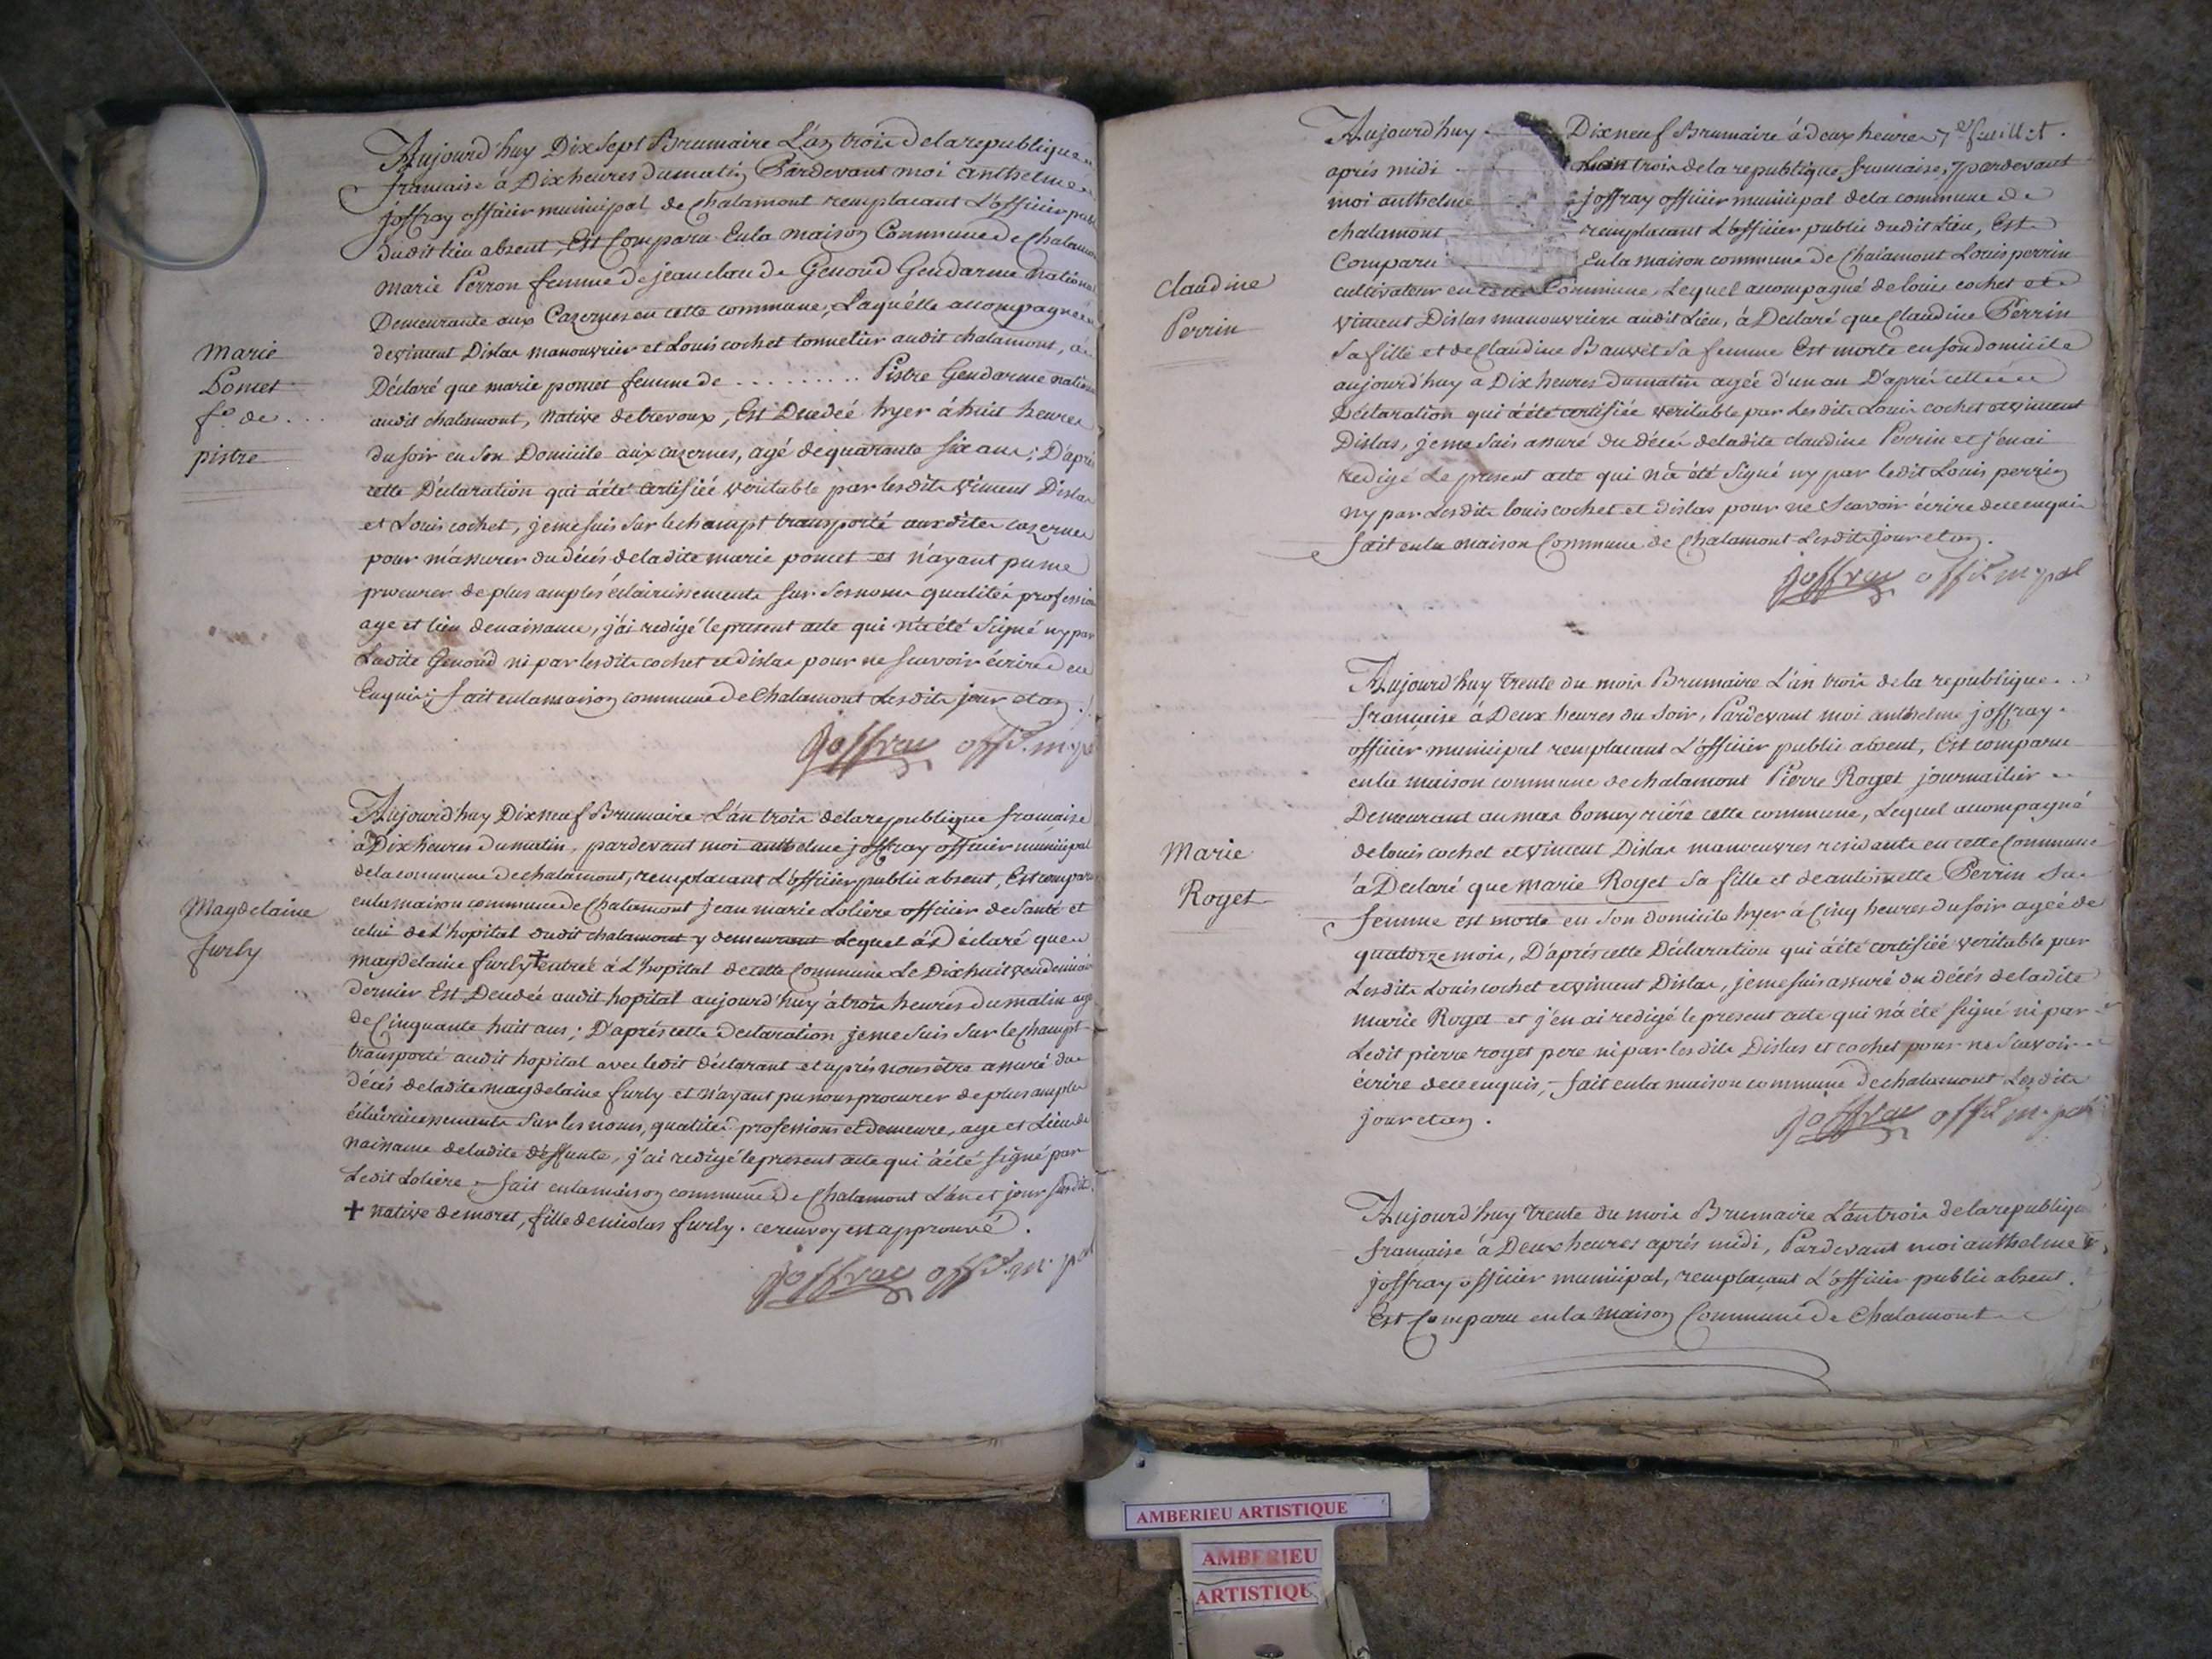 Aujourd'huy Dix sept Brumaire L'an trois de la republique
francaise à Dix heures du matin Pardevant moi anthelme
joffray officier municipal de Chalamont remplacant L'officier
dudit lieu absent, Est Comparu En la maison Commune de Chalamont
marie Perron femme de jean claude Genoud Gendarme national
Demeurante aux Cazernes en cette commune, Laquelle accompagnée
de vincent Dislas manouvrier et Louis cochet tonnelier audit chalamont, a
Déclaré que marie pomet femme de ......... Pistre Gendarme national
audit chalamont, native de trevoux, Est Decedeé hyer à huit heures
du soir en son Domicile aux cazernes, agé de quarante six ans; D'après
cette Déclaration qui a été Certifiée veritable par lesdits vincent Dislas
et Louis cochet, je me suis sur le champt transporté auxdites cazernes
pour m'assurer du décés de ladite marie pomet et n'ayant pu me
procurer de plus amples éclaircissements sur ses noms qualités profession
age et lieu de naissance, j'ai redigé le present acte qui n'a été signé ny par
Ladite Genoud ni par lesdits cochet et dislas pour ne scavoir écrire de ce
Enquis; fait en la maison commune de Chalamont Lesdits jour et an.
Joffray offr. m.pal
Marie
Pomet
fe. de ...
pistre
Aujourd'huy Dix neuf Brumaire L'an trois de la republique francaise
à Dix heures du matin, pardevant moi anthelme joffray officier municipal
de la commune de chalamont, remplacant L'officier public absent, Est comparu
en la maison commune de Chalamont jean marie Loliere officier de Santé et
celui de L'hopital dudit chalamont y demeurant Lequel a Déclaré que
magdelaine furly + entrée à L'hopital de cette Commune Le Dix huit vendemiaire
dernier Est Decedée audit hopital aujourd'huy à trois heures du matin agé
de Cinquante huit ans; D'après cette declaration je me suis sur le champt
transporté audit hopital avec ledit déclarant et après nous être assuré du
décés de ladite magdelaine furly et n'ayant pu nous procurer de plus amples
éclaircissements sur les noms, qualités professions et demeure, age et Lieu de
naissance de ladite déffunte, j'ai redigé le present acte qui a été signé par
Ledit Loliere fait en la maison commune de Chalamont L'an et jour susdits.
+ native de moret, fille de nicolas furly. ce renvoy est approuvé.
Joffray offr. m.pal
Magdelaine
furly
Aujourd'huy Dix neuf Brumaire à deux heures 7e feuillet.
après midi L'an trois de la republique francaise, pardevant
moi anthelme joffray officier municipal de la commune de
chalamont remplacant L'officier public dudit Lieu, Est
Comparu En la maison commune de Chalamont Louis perrin
cultivateur en cette Commune, Lequel accompagné de louis cochet et
vincent Dislas manouvriers audit Lieu, à Declaré que Claudine Perrin
sa fille et de Claudine Bauvet sa femme Est morte en son domicile
aujourd'huy a Dix heures du matin agée d'un an D'après cette
Déclaration qui a été certifiée veritable par Lesdits Louis cochet et vincent
Dislas, je me suis assuré du décés de ladite claudine Perrin et j'en ai
redigé Le present acte qui n'a été signé ny par ledit Louis perrin
ny par Lesdits louis cochet et dislas pour ne Scavoir écrire de ce enquis
fait en la maison Commune de Chalamont Lesdits jour et an.
Joffray offr. m.pal
Claudine
Perrin
Aujourd'huy trente du mois Brumaire L'an trois de la republique
française à Deux heures du soir, Pardevant moi anthelme joffray
officier municipal remplacant L'officier public absent, Est comparu
en la maison commune de chalamont Pierre Roget journailier
Demeurant au mas bomay riére cette commune, Lequel accompagné
de louis cochet et vincent Dislas manoeuvres residants en cette Commune
à Declaré que Marie Roget sa fille et de antoinette Perrin sa
femme est morte en son domicile hyer à Cinq heures du soir ageé de
quatorze mois, D'après cette Déclaration qui a été certifiée veritable par
Lesdits Louis cochet et vincent Dislas, je me suis assuré du décés de ladite
marie Roget et j'en ai redigé le present acte qui n'a été signé ni par
Ledit pierre roget pere ni par lesdits Dislas et cochet pour ne Scavoir
écrire de ce enquis, fait en la maison commune de chalamont Lesdits
jour et an.
Joffray offr. m.pal
Marie
Roget
Aujourd'huy trente du mois Brumaire L'an trois de la republique
française à Deux heures après midi, Pardevant moi anthelme
joffray officier municipal, remplaçant L'officier public absent.
Est Comparu en la maison Commune de Chalamont
AMBERIEU ARTISTIQUE
AMBERIEU
ARTISTIQUE